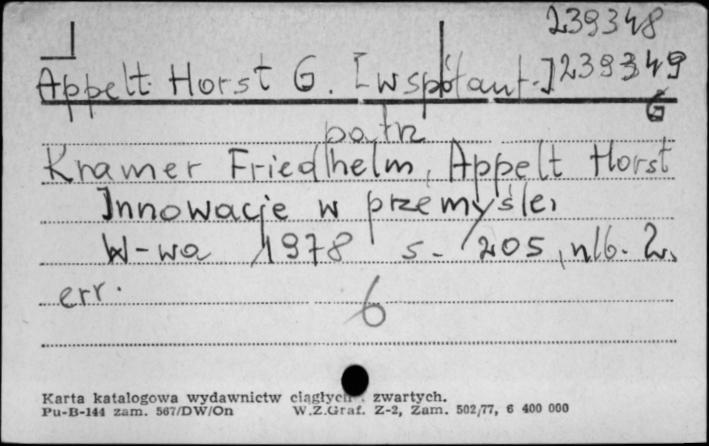 239348
Appelt Horst G. [współaut.] 239349
G
patrz
Kramer Friedhelm, Appelt Horst
Innowacje w przemyśle,
W-wa 1978 s. 205, nlb. 2,
err.
6
Karta katalogowa wydawnictw ciągłych zwartych.
Pu-B-144 zam. 567/DW/On W.Z.Graf. Z-2, Zam. 502/77, 6 400 000